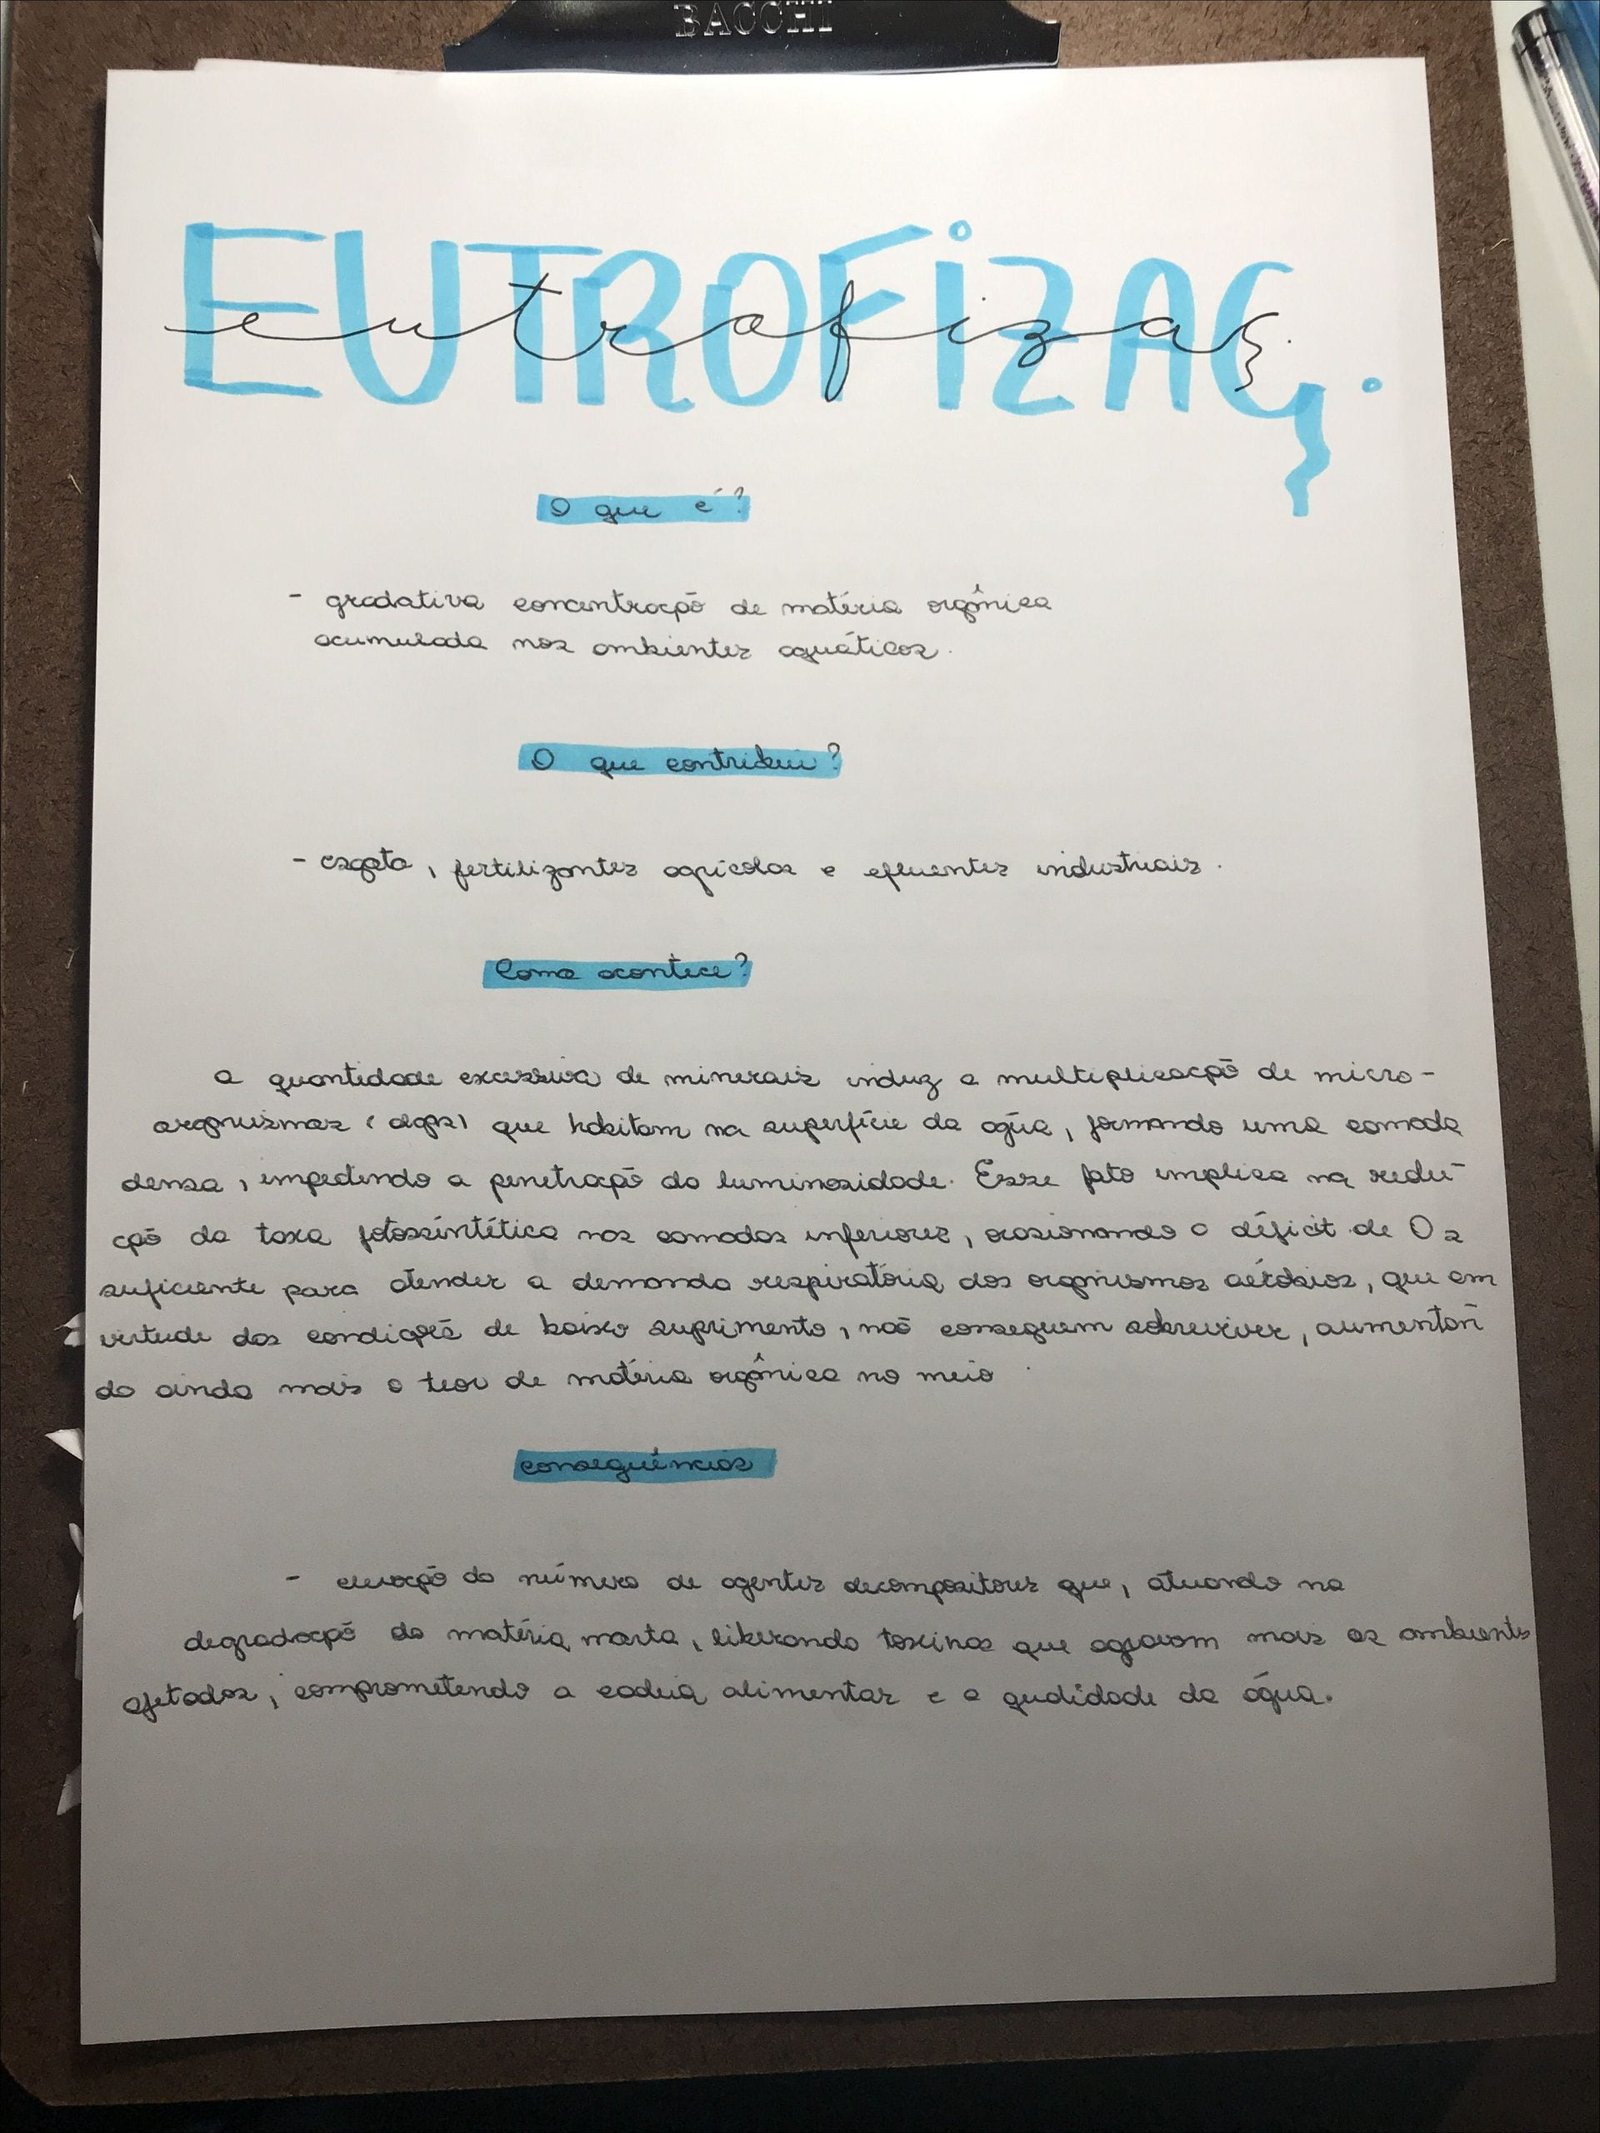 BACCHI
EUTROFIZAÇ.
eutrofizaç.
O que é?
- gradativa concentração de matéria orgânica
acumulada nos ambientes aquáticos.
O que contribui?
- esgoto, fertilizantes agrícolas e efluentes industriais.
Como acontece?
a quantidade excessiva de minerais induz a multiplicação de micro-
organismos (algas) que habitam na superfície da água, formando uma camada
densa, impedindo a penetração da luminosidade. Esse fato implica na redu-
ção da taxa fotossintética nas camadas inferiores, ocasionando o déficit de O2
suficiente para atender a demanda respiratória dos organismos aeróbios, que em
virtude das condições de baixo suprimento, não conseguem sobreviver, aumentan-
do ainda mais o teor de matéria orgânica no meio.
consequências
- elevação do número de agentes decompositores que, atuando na
degradação da matéria morta, liberando toxinas que agravam mais os ambientes
afetados, comprometendo a cadeia alimentar e a qualidade da água.